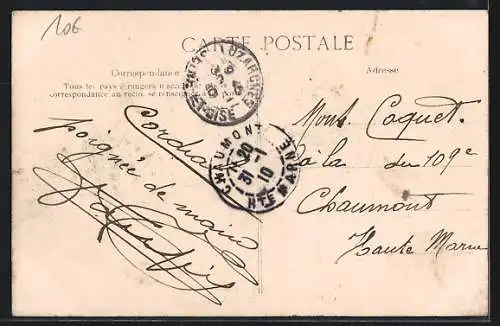 106
CARTE POSTALE
Correspondance
Adresse
Tous les pays étrangers n'acceptent
correspondance au recto, se renseigner
LUZARCHES
SEINE ET OISE
CHAUMONT
HTE MARNE
20
31 -1
10
Cordiale
poignée de mains
Mons. Caquet
à la du 109e
Chaumont
Haute Marne